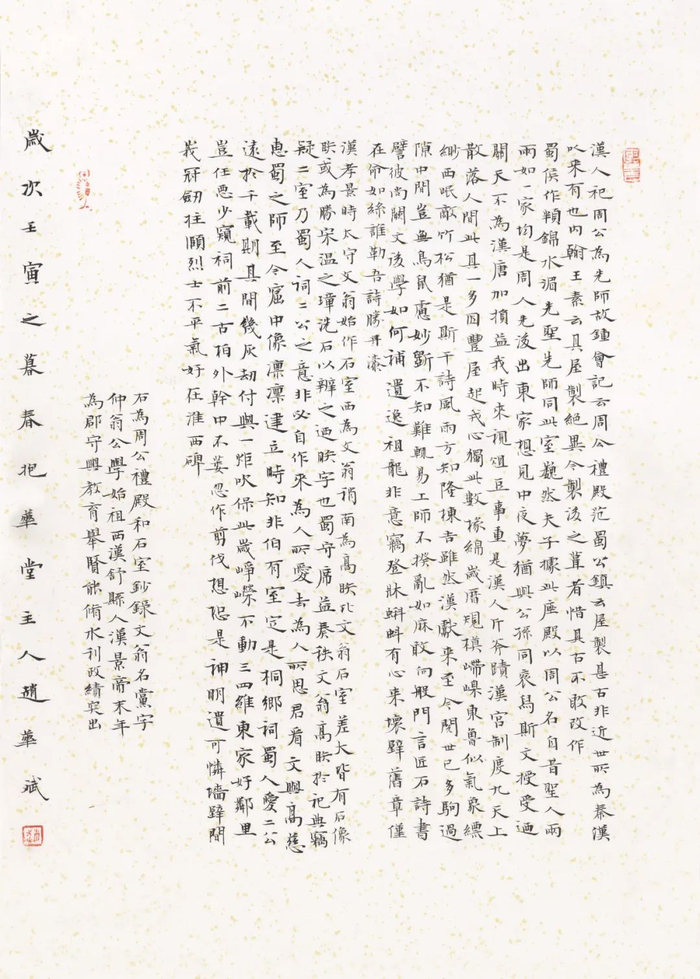 漢人祀周公為先師故鍾會記云周公禮殿范蜀公鎮云屋製甚古非近世所為秦漢
以来有也内翰王素云其屋製絕異今製後之葺者惜其古不敢改作
蜀侯作頖錦水湄先聖先師同此室巍然夫子據此座殿以周公名自昔聖人兩
兩如一家均是周人先後出東家想見中夜夢猶與公孫同袞舄斯文授受迺
關天不為漢唐加損益我時來視俎豆事重是漢人斤斧蹟漢宮制度九天上
散落人間此其一多因豐屋起戎心獨此數椽綿歲曆規模嶀嵲東魯似氣象縹
緲西岷敵竹松猶是斯干詩風雨方知隆棟吉雖然漢獻来至今閱世已多駒過
隙中間豈無鳥鼠慮妙斲不知難輒易工師不揆亂如麻敢向般門言匠石詩書
譬彼尚闕文後學如何補遺逸祖龍非意竊登牀蝌蚪有心来壞壁舊章僅
在命如絲誰勒吾詩勝丹漆
漢孝景時太守文翁始作石室西為文翁稍南為高眹比文翁石室差大皆有石像
眹或為勝宋温之璋洗石以辨之迺眹字也蜀守席益奏秩文翁高眹於祀典竊
疑二室乃蜀人祠二公之意非必自作來為人所愛去為人所思君看文與高慈
惠蜀之師至今窟中像凛凛建立時知非伯有室定是桐鄉祠蜀人愛二公
遠於千載期其間幾灰劫付與一炬吹保此歲崢嶸不動三四維東家好鄰里
豈任惡少窺祠前二古柏外幹中不萎忍作剪伐想恐是神明遺可憐墻壁間
峩冠劒拄頤烈士不平氣好在淮西碑
石為周公禮殿和石室鈔錄文翁石黨字
仲翁公學始祖西漢舒縣人漢景帝末年
為郡守興教育舉賢能脩水利政績突出
歲次壬寅之暮春把華堂主人趙華斌